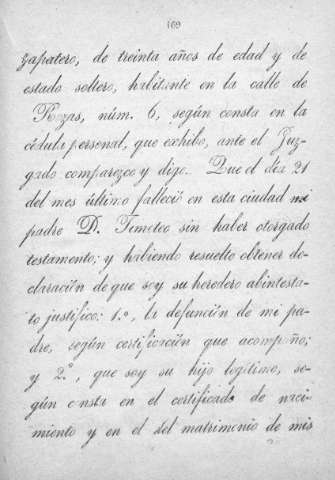 169
zapatero, de treinta años de edad y de
estado soltero, habitante en la calle de
Rozas, núm. 6, según consta en la
cédula personal, que exhibo, ante el Juz-
gado comparezco y digo: Que el día 21
del mes último falleció en esta ciudad mi
padre D. Timoteo sin haber otorgado
testamento; y habiendo resuelto obtener de-
claración de que soy su heredero abintesta-
to justifico: 1.º, la defunción de mi pa-
dre, según certificación que acompaño;
y 2.º, que soy su hijo legítimo, se-
gún consta en el certificado de naci-
miento y en el del matrimonio de mis